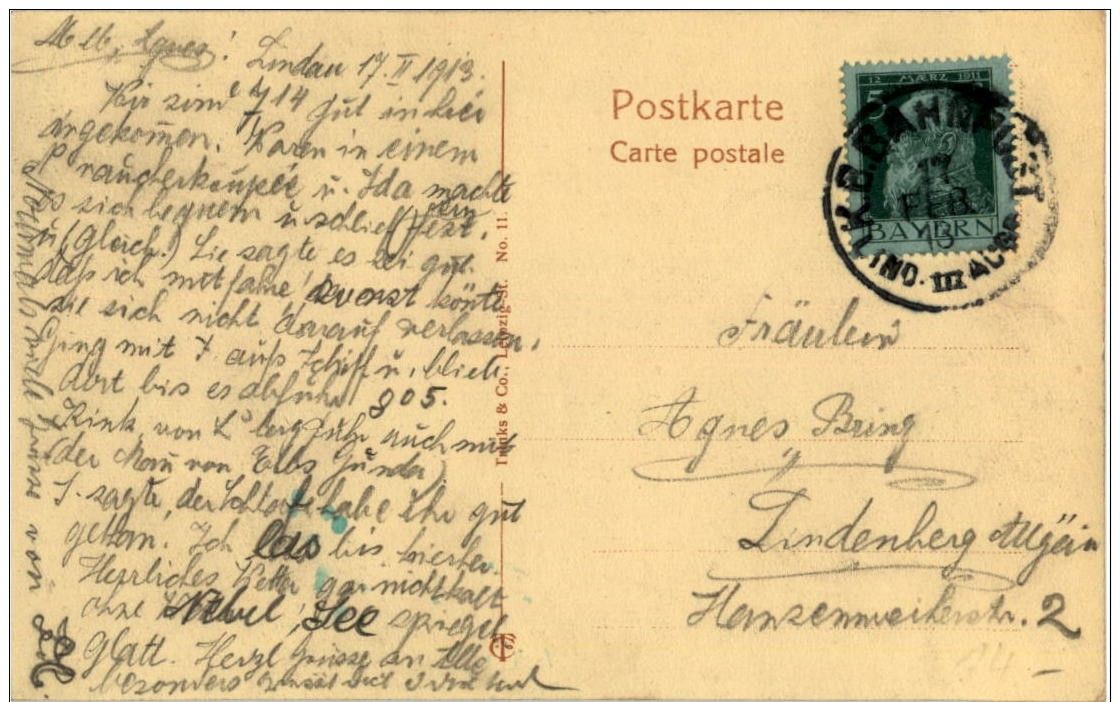 Agnes! Lindau 17. II 1913.
Wir sind 7 14 gut in hier
angekommen. Waren in einem
Raucherkoupee u. Ida machte
es sich bequem u. schlief fest ein,
u. (Gleich.) Sie sagte es sei gut
daß ich mitfahre, sonst könte
sie sich nicht darauf verlassen.
Ging mit I auf's Schiff u. blieb
dort bis es abfuhr 805.
Rink von L'berg fuhr auch mit
(der Man von Elbs Gunda)
I. sagte, der Schlaf habe ihr gut
getan. Ich las bis hierher.
Herrliches Wetter gar nicht kalt
ohne Nebel, See spiegel
glatt. Herzl Grüsse an Alle
besonders
Nochmals Grüsse von
Postkarte
Carte postale
Trinks & Co., Leipzig-St. No. 11.
12 MÆRZ 1911
5
BAYERN
K.B. BAHNPOST
17
FEB
13
LIND. III AUGSB
Fräulein
Agnes Bring
Lindenberg Allgäu
Hansenweilerstr. 2